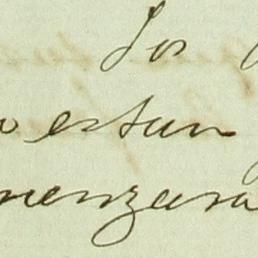 Los
o estan
menzara